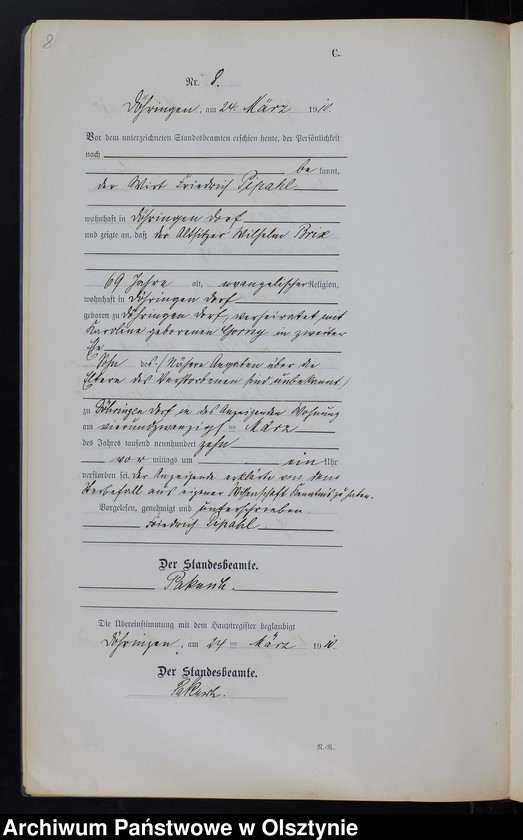 8
C.
Nr. 8.
Döhringen, am 24. März 1910.
Vor dem unterzeichneten Standesbeamten erschien heute, der Persönlichkeit
nach
be kannt,
der Wirt Friedrich Pipahl
wohnhaft in Döhringen Dorf
und zeigte an, daß der Altsitzer Wilhelm Brix
69 Jahre alt, evangelischer Religion,
wohnhaft in Döhringen Dorf
geboren zu Döhringen Dorf, verheiratet mit
Karoline geborenen Gorny in zweiter
Ehe
Sohn des (Nähere Angaben über die
Eltern des Verstorbenen sind unbekannt)
zu Döhringen Dorf in des Anzeigenden Wohnung
am vierundzwanzigsten März
des Jahres tausend neunhundert zehn
vor mittags um ein Uhr
verstorben sei. Der Anzeigende erklärte von dem
Sterbefall aus eigener Wissenschaft Kenntnis zu haben.
Vorgelesen, genehmigt und unterschrieben
Friedrich Pipahl
Der Standesbeamte.
Die Übereinstimmung mit dem Hauptregister beglaubigt
Döhringen, am 24 ten März 1910.
Der Standesbeamte.
N.-R.
Archiwum Państwowe w Olsztynie